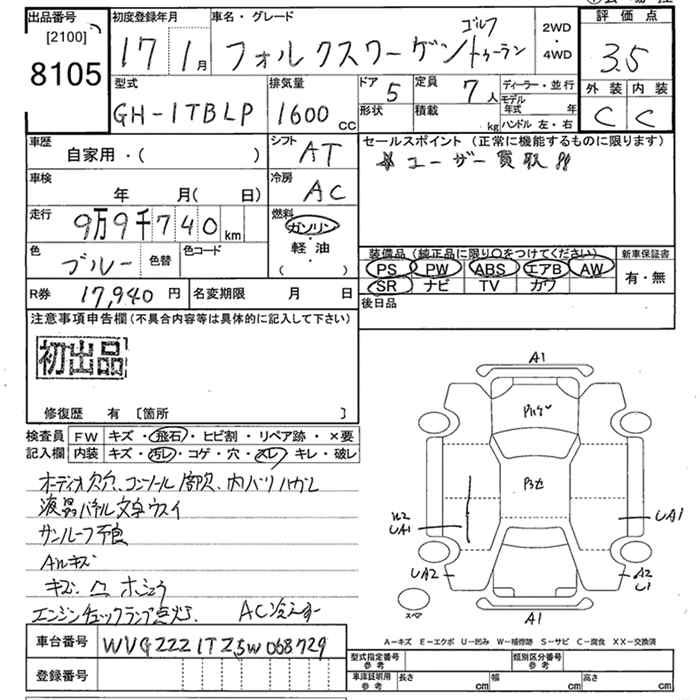 出品番号
[2100]
8105
初度登録年月
17年 1月
車名・グレード
フォルクスワーゲン ゴルフ トゥーラン
2WD・4WD
評価点
3.5
外装 内装
C C
型式
GH-1TBLP
排気量
1600 cc
ドア 5
形状
定員 7人
積載 kg
ディーラー・並行
モデル年式 年
ハンドル 左・右
車歴
自家用・( )
シフト
AT
車検
年 月( 日)
冷房
AC
走行
9万9千740 km
燃料
ガソリン・軽油
( )
色
ブルー
色替
色コード
R券 17,940 円
名変期限 月 日
セールスポイント (正常に機能するものに限ります)
ユーザー買取!!
装備品 (純正品に限り〇をつけてください)
新車保証書
PS PW ABS エアB AW
SR ナビ TV カワ
有・無
後日品
注意事項申告欄 (不具合内容等は具体的に記入して下さい)
初出品
修復歴 有 [箇所 ]
検査員 FW キズ・飛石・ヒビ割・リペア跡・×要
記入欄 内装 キズ・汚レ・コゲ・穴・スレ・キレ・破レ
オーディオ欠穴、コンソール 内バリハガレ
液晶パネル文字ウスイ
サンルーフ不良
AWキズ
キズ、凹 ホシュウ
エンジンチェックランプ点灯、 AC冷えず
A1
UA1
UA1
UA2
A2
U1
スペア
A1
A-キズ E-エクボ U-凹み W-補修跡 S-サビ C-腐食 XX-交換済
車台番号 WVGZZZ1TZ5W068729
登録番号
型式指定番号 参考
類別区分番号 参考
車庫証明用 参考 長さ cm 幅 cm 高さ cm